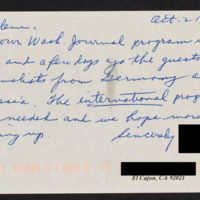 Oct. 21
our Wash. Journal program
and a few days ago the guests
nalists from Germany
ssia. The international prog
needed and we hope mor
ing up. Sincerely
El Cajon, CA 92021